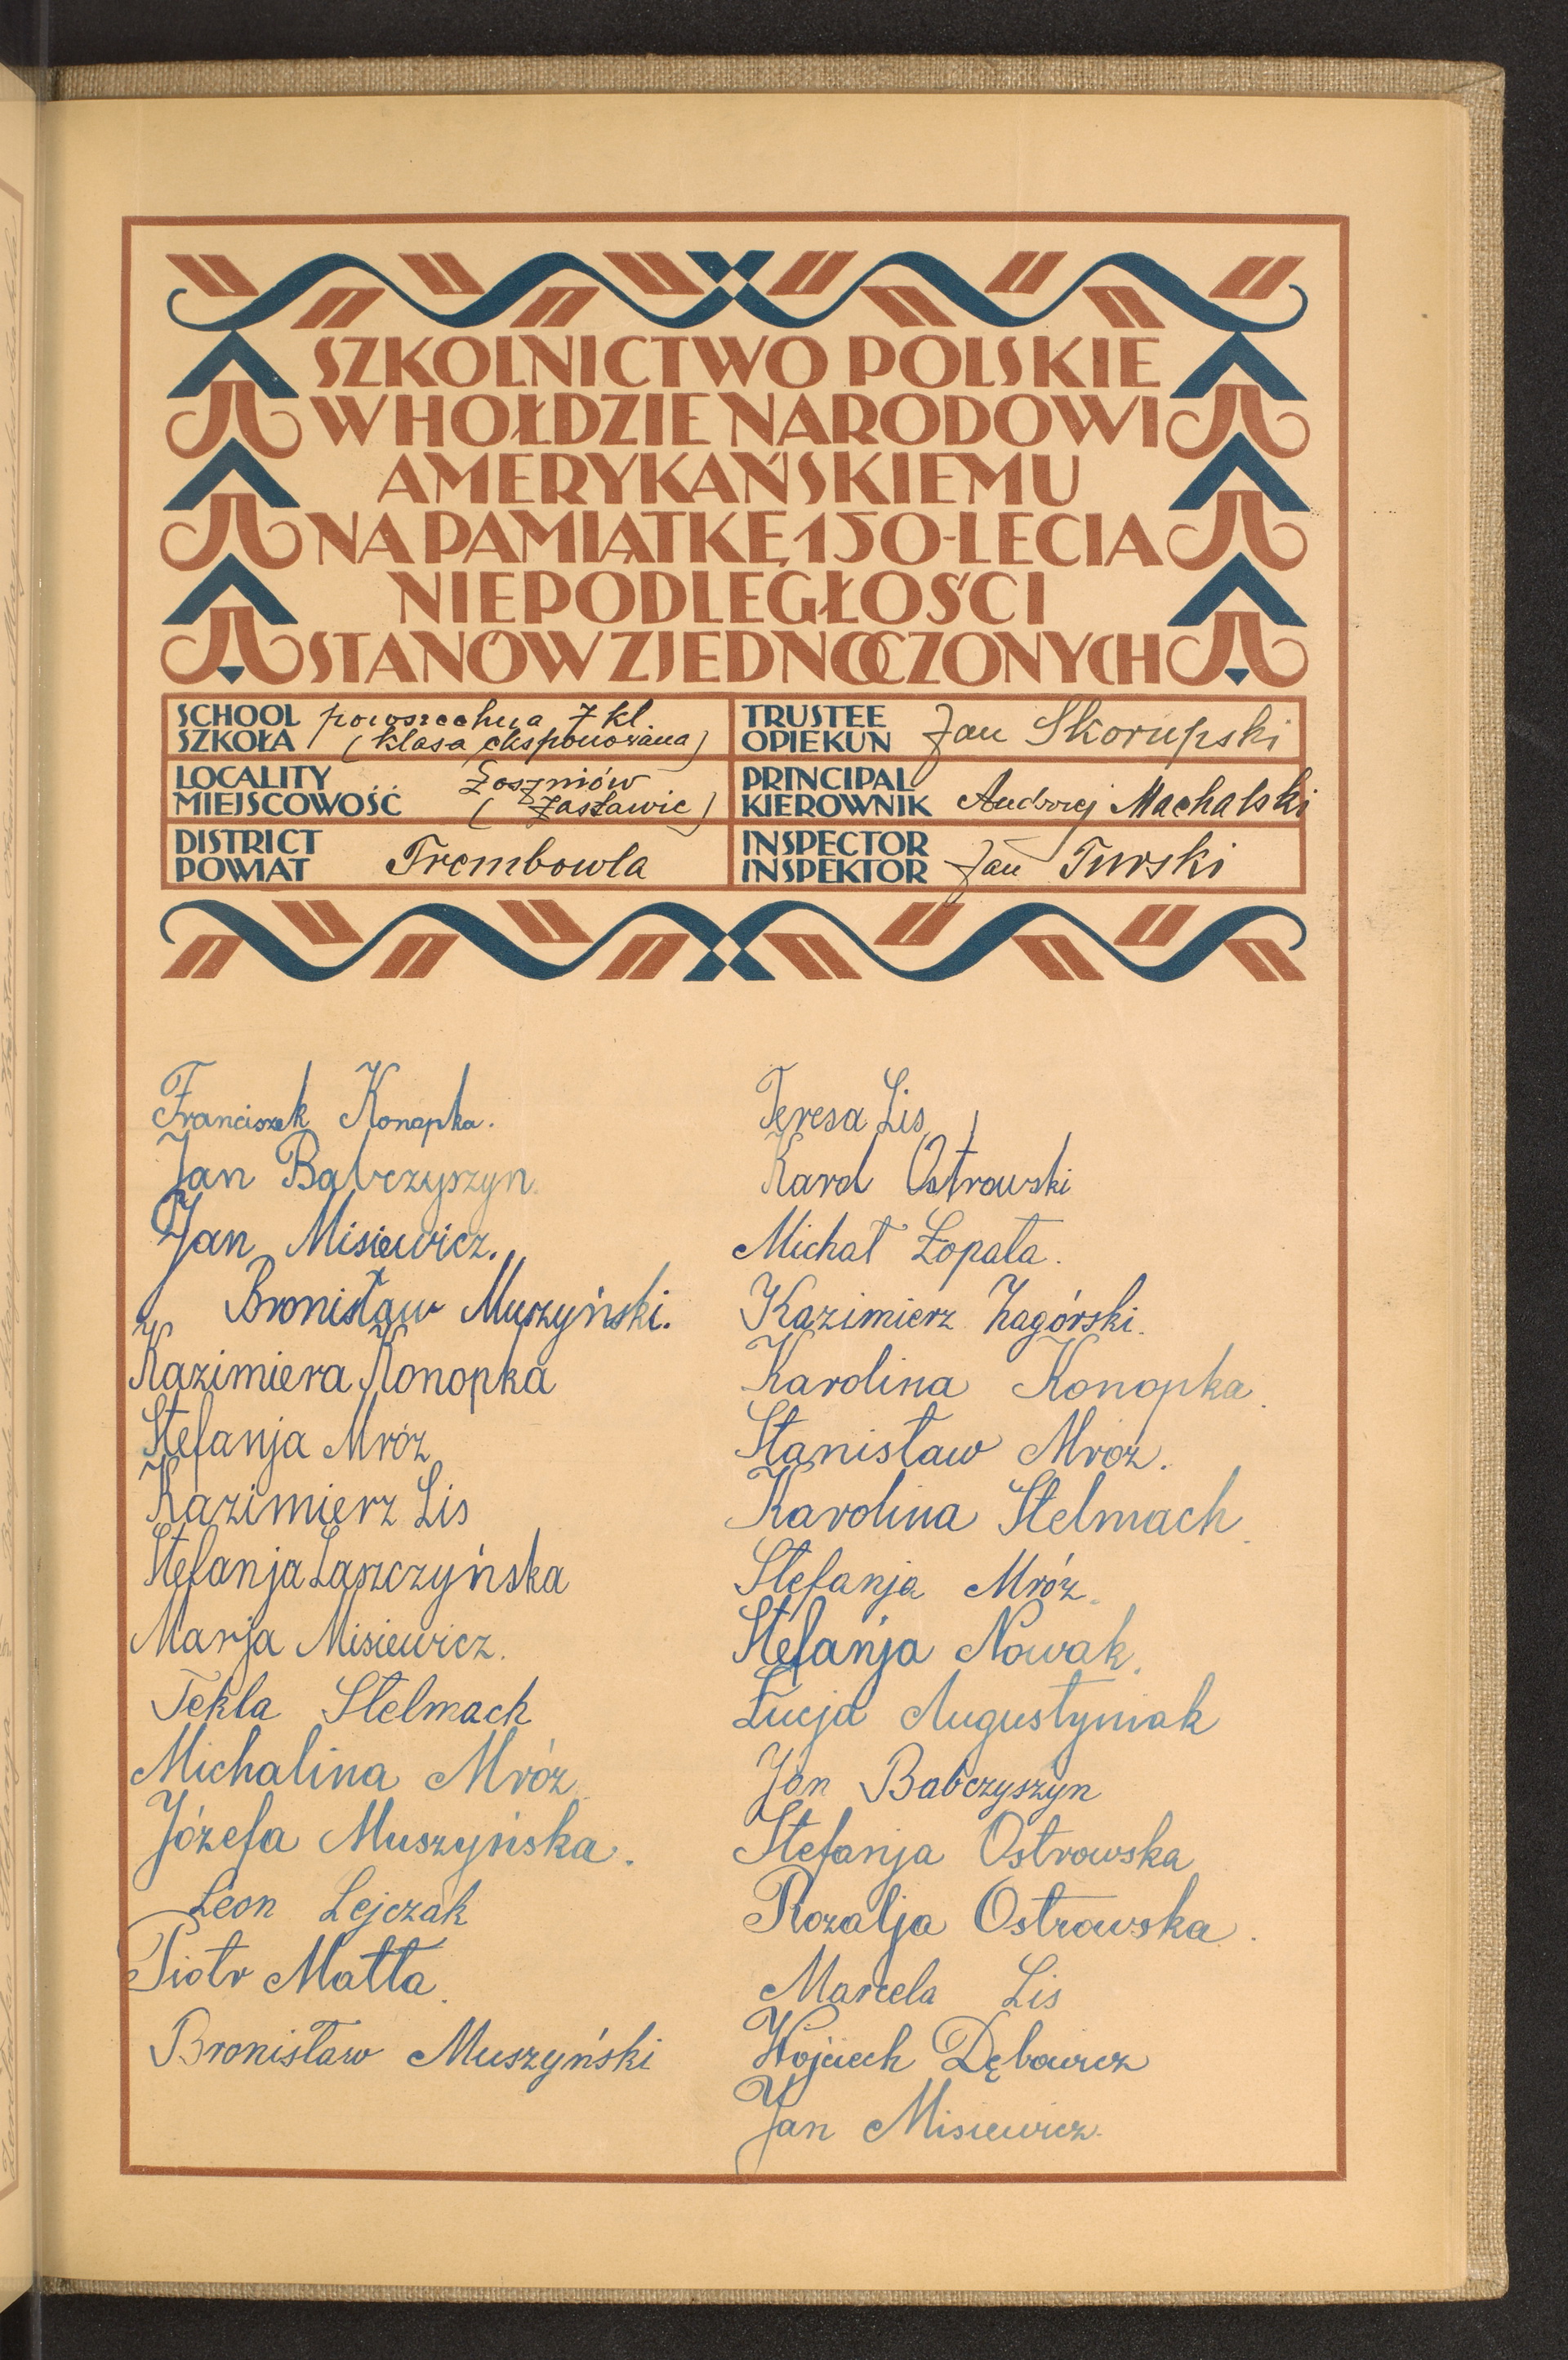 SZKOLNICTWO POLSKIE
W HOŁDZIE NARODOWI
AMERYKAŃSKIEMU
NA PAMIĄTKĘ 150-LECIA
NIEPODLEGŁOŚCI
STANÓW ZJEDNOCZONYCH
SCHOOL
SZKOŁA
powszechna 7 kl.
(klasa eksponowana)
TRUSTEE
OPIEKUN
Jan Skorupski
LOCALITY
MIEJSCOWOŚĆ
Łoszniów
(Zasławie)
PRINCIPAL
KIEROWNIK
Andrzej Machalski
DISTRICT
POWIAT
Trembowla
INSPECTOR
INSPEKTOR
Jan Turski
Franciszek Konopka.
Jan Babczyszyn.
Jan Misiewicz.
Bronisław Muszyński.
Kazimiera Konopka
Stefanja Mróz
Kazimierz Lis
Stefanja Laszczyńska
Marja Misiewicz.
Tekla Stelmach
Michalina Mróz.
Józefa Muszyńska.
Leon Lejczak
Piotr Matta.
Bronisław Muszyński
Teresa Lis
Karol Ostrowski
Michał Łopata.
Kazimierz Zagórski.
Karolina Konopka.
Stanisław Mróz.
Karolina Stelmach.
Stefanja Mróz.
Stefanja Nowak.
Łucja Augustyniak
Jan Babczyszyn
Stefanja Ostrowska
Rozalja Ostrowska.
Marcela Lis
Wojciech Dębowicz
Jan Misiewicz.